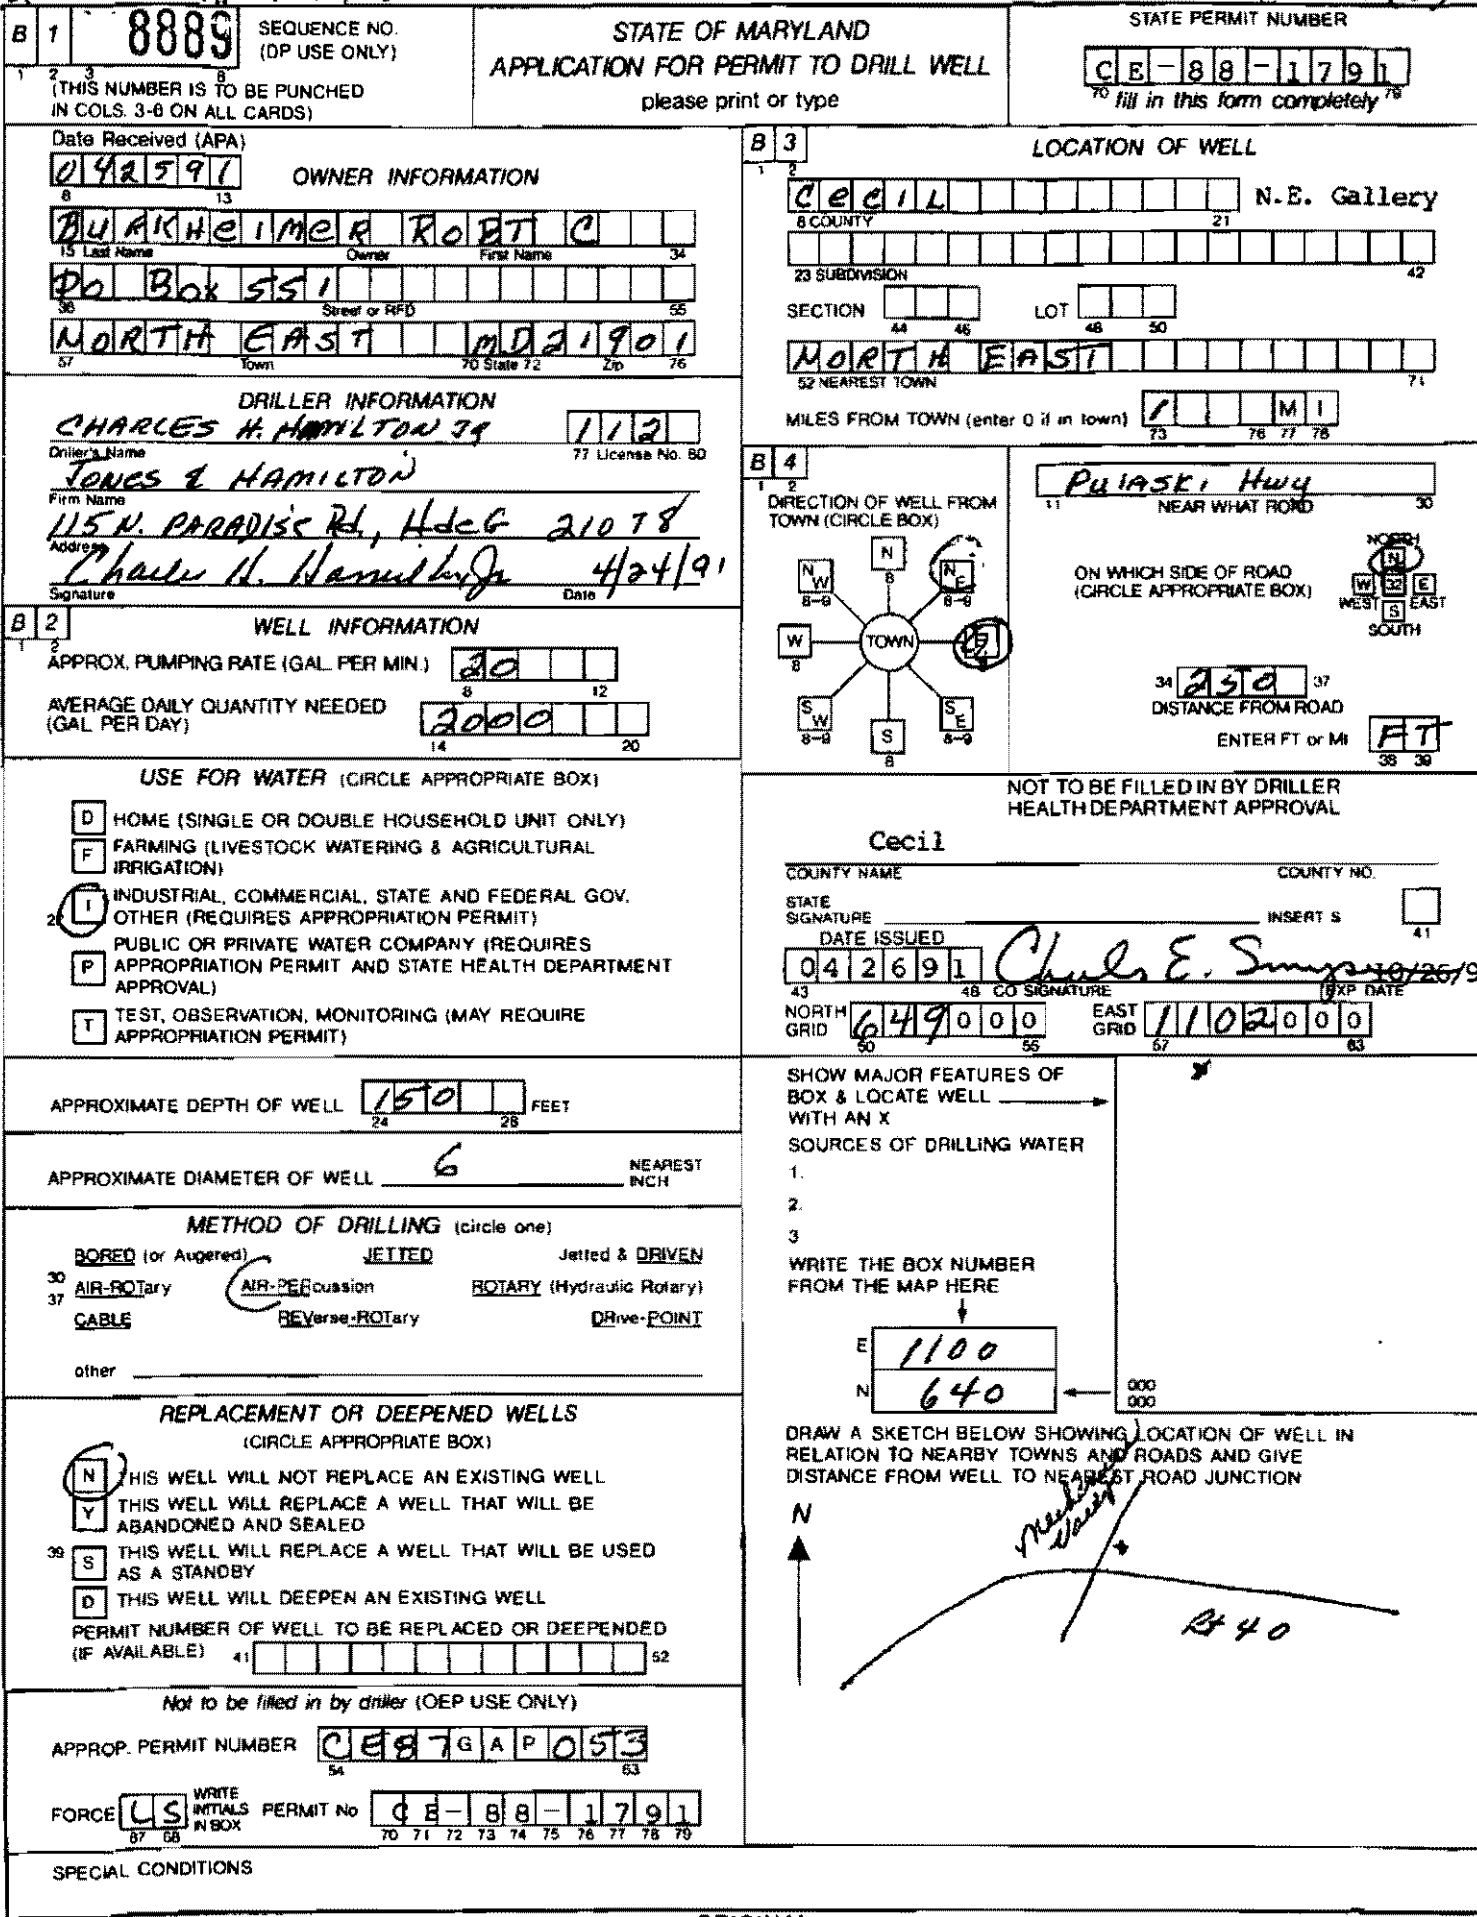 B 1
8889
SEQUENCE NO.
(DP USE ONLY)
1 2 3 8
(THIS NUMBER IS TO BE PUNCHED
IN COLS. 3-6 ON ALL CARDS)
STATE OF MARYLAND
APPLICATION FOR PERMIT TO DRILL WELL
please print or type
STATE PERMIT NUMBER
CE-88-1791
70 79
fill in this form completely
Date Received (APA)
042591
8 13
OWNER INFORMATION
BURKHeIMeR ROBT C
15 Last Name Owner First Name 34
PO Box 551
36 Street or RFD 55
NORTH EAST MD 21901
57 Town 70 State 72 Zip 76
DRILLER INFORMATION
CHARLES H. HAMILTON JR 112
Driller's Name 77 License No. 80
JONES & HAMILTON
Firm Name
115 N. PARADISE Rd., HdeG 21078
Address
Charles H. Hamilton Jr 4/24/91
Signature Date
B 2
1 2
WELL INFORMATION
APPROX. PUMPING RATE (GAL. PER MIN.) 20
8 12
AVERAGE DAILY QUANTITY NEEDED
(GAL PER DAY) 2000
14 20
USE FOR WATER (CIRCLE APPROPRIATE BOX)
D HOME (SINGLE OR DOUBLE HOUSEHOLD UNIT ONLY)
F FARMING (LIVESTOCK WATERING & AGRICULTURAL
IRRIGATION)
I INDUSTRIAL, COMMERCIAL, STATE AND FEDERAL GOV.
OTHER (REQUIRES APPROPRIATION PERMIT)
P PUBLIC OR PRIVATE WATER COMPANY (REQUIRES
APPROPRIATION PERMIT AND STATE HEALTH DEPARTMENT
APPROVAL)
T TEST, OBSERVATION, MONITORING (MAY REQUIRE
APPROPRIATION PERMIT)
APPROXIMATE DEPTH OF WELL 150 FEET
24 28
APPROXIMATE DIAMETER OF WELL 6 NEAREST
INCH
METHOD OF DRILLING (circle one)
BORED (or Augered) JETTED Jetted & DRIVEN
30 AIR-ROTary AIR-PERcussion ROTARY (Hydraulic Rotary)
37
CABLE REVerse-ROTary DRive-POINT
other
REPLACEMENT OR DEEPENED WELLS
(CIRCLE APPROPRIATE BOX)
N THIS WELL WILL NOT REPLACE AN EXISTING WELL
Y THIS WELL WILL REPLACE A WELL THAT WILL BE
ABANDONED AND SEALED
39 S THIS WELL WILL REPLACE A WELL THAT WILL BE USED
AS A STANDBY
D THIS WELL WILL DEEPEN AN EXISTING WELL
PERMIT NUMBER OF WELL TO BE REPLACED OR DEEPENDED
(IF AVAILABLE) 41 52
Not to be filled in by driller (OEP USE ONLY)
APPROP. PERMIT NUMBER CE87GAP053
54 63
FORCE LS WRITE
INITIALS
IN BOX
67 68
PERMIT No CE-88-1791
70 71 72 73 74 75 76 77 78 79
SPECIAL CONDITIONS
B 3
1 2
LOCATION OF WELL
CeCIL N.E. Gallery
8 COUNTY 21
23 SUBDIVISION 42
SECTION LOT
44 46 48 50
NORTH EAST
52 NEAREST TOWN 71
MILES FROM TOWN (enter 0 if in town) 1 MI
73 76 77 78
B 4
1 2
DIRECTION OF WELL FROM
TOWN (CIRCLE BOX)
N
8
NW
8-9
NE
8-9
W
8
TOWN
SW
8-9
S
8
SE
8-9
Pulaski Hwy
11 NEAR WHAT ROAD 30
ON WHICH SIDE OF ROAD
(CIRCLE APPROPRIATE BOX)
NORTH
N
W 32 E
WEST EAST
S
SOUTH
34 250 37
DISTANCE FROM ROAD
ENTER FT or MI FT
38 39
NOT TO BE FILLED IN BY DRILLER
HEALTH DEPARTMENT APPROVAL
Cecil
COUNTY NAME COUNTY NO.
STATE
SIGNATURE INSERT S
41
DATE ISSUED
042691
43 48 CO SIGNATURE EXP DATE
10/26/9
NORTH
GRID 649000
50 55
EAST
GRID 1102000
57 63
SHOW MAJOR FEATURES OF
BOX & LOCATE WELL
WITH AN X
SOURCES OF DRILLING WATER
1.
2.
3
WRITE THE BOX NUMBER
FROM THE MAP HERE
E 1100
N 640
000
000
DRAW A SKETCH BELOW SHOWING LOCATION OF WELL IN
RELATION TO NEARBY TOWNS AND ROADS AND GIVE
DISTANCE FROM WELL TO NEAREST ROAD JUNCTION
N
Rt 40